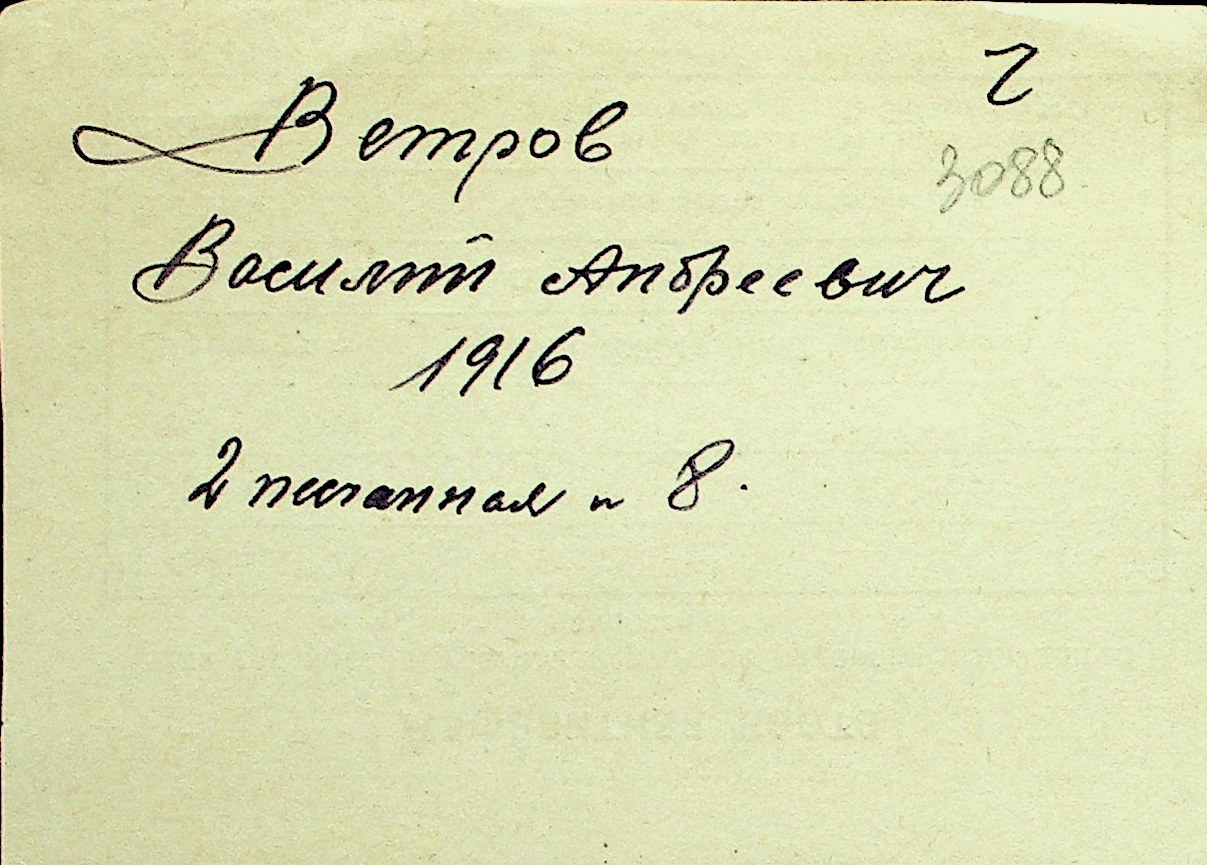 Ветров
3088
Василий Андреевич
1916
2 Песчаная н 8.